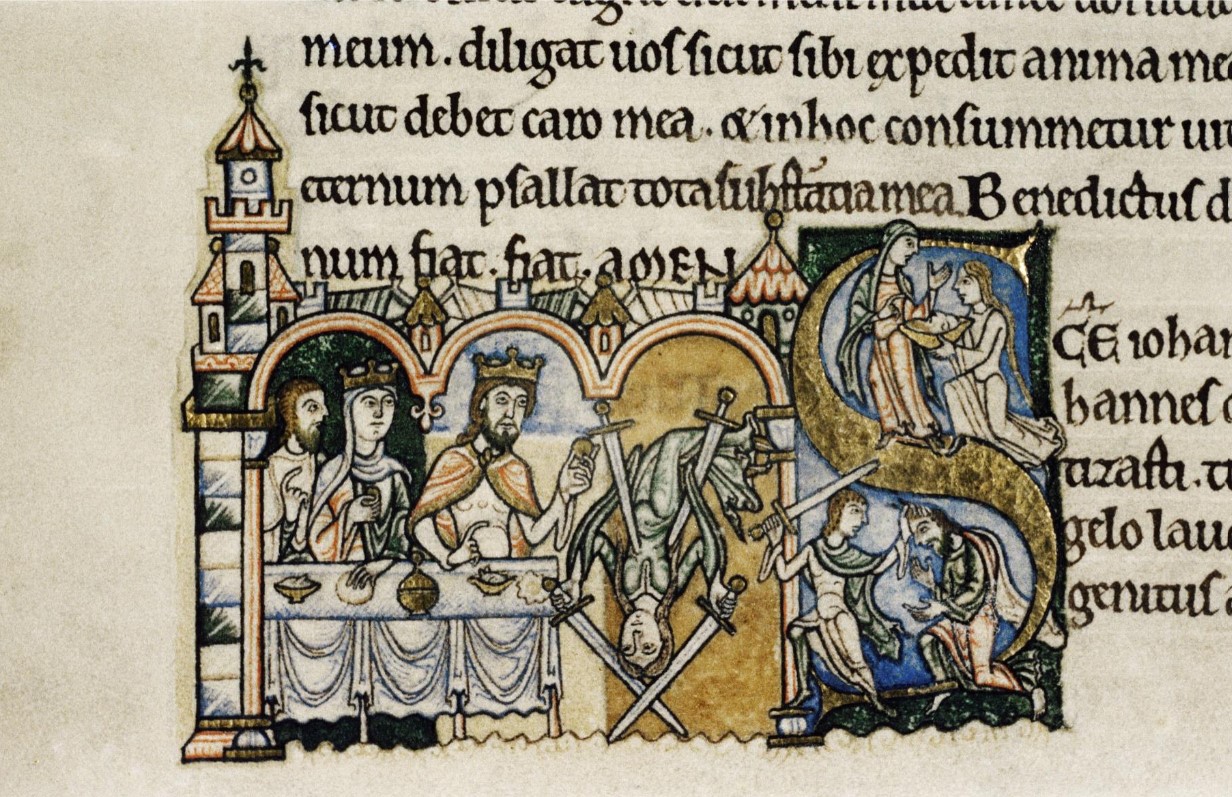 meum. diligat uos sicut sibi expedit anima mea
sicut debet caro mea. & inhoc consummetur
eternum psallat tota substātia mea Benedictus d
num fiat. fiat. AMEN
S
CE iohan
hannes
tizasti.
gelo lau
genitus